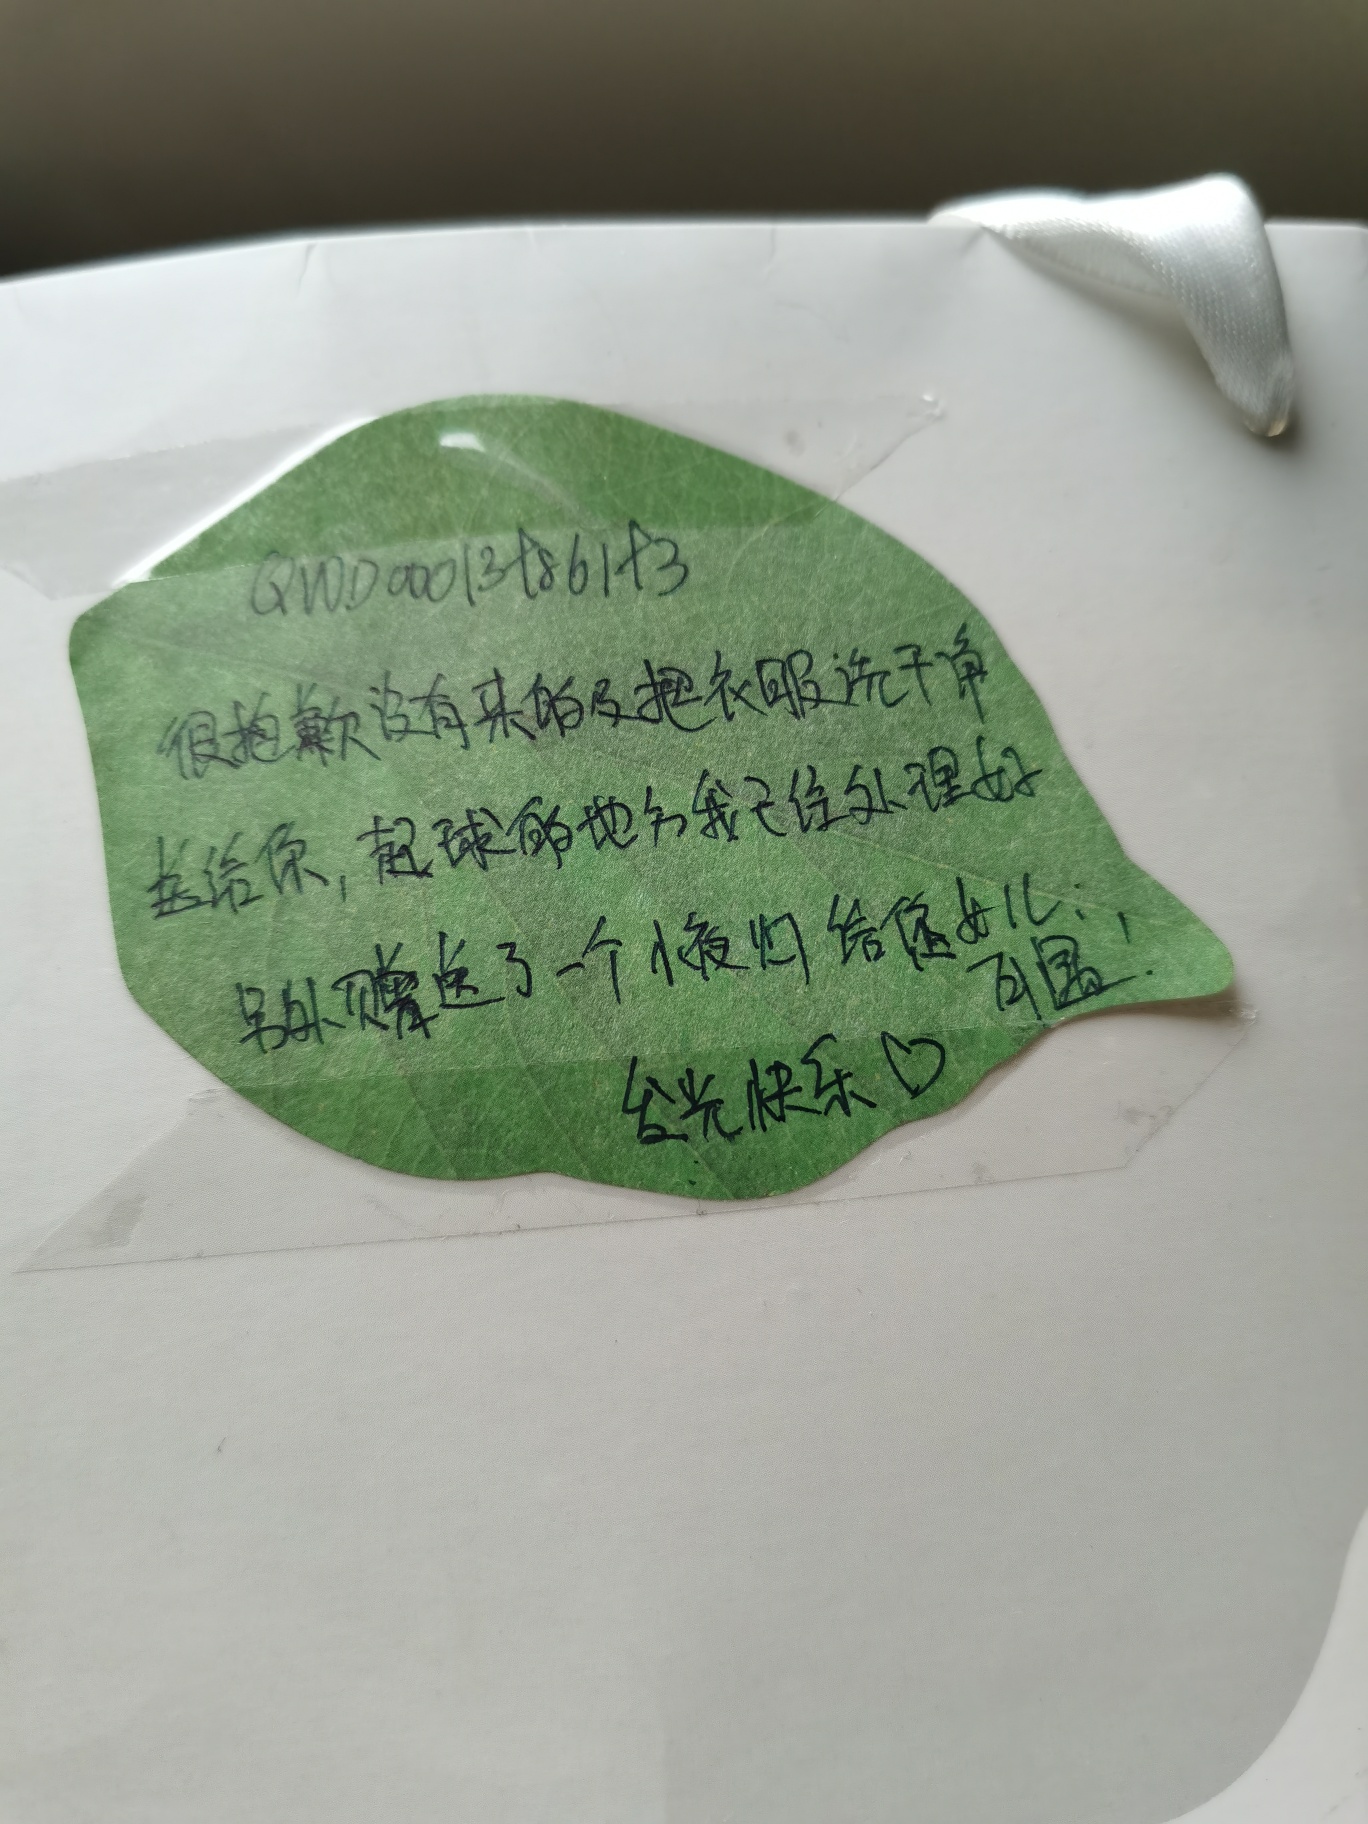 QWD00013786173
很抱歉没有来的及把衣服洗干净
送给你,起球的地方我已经处理好
另外赠送了一个小夜灯 给您女儿
发光快乐♡